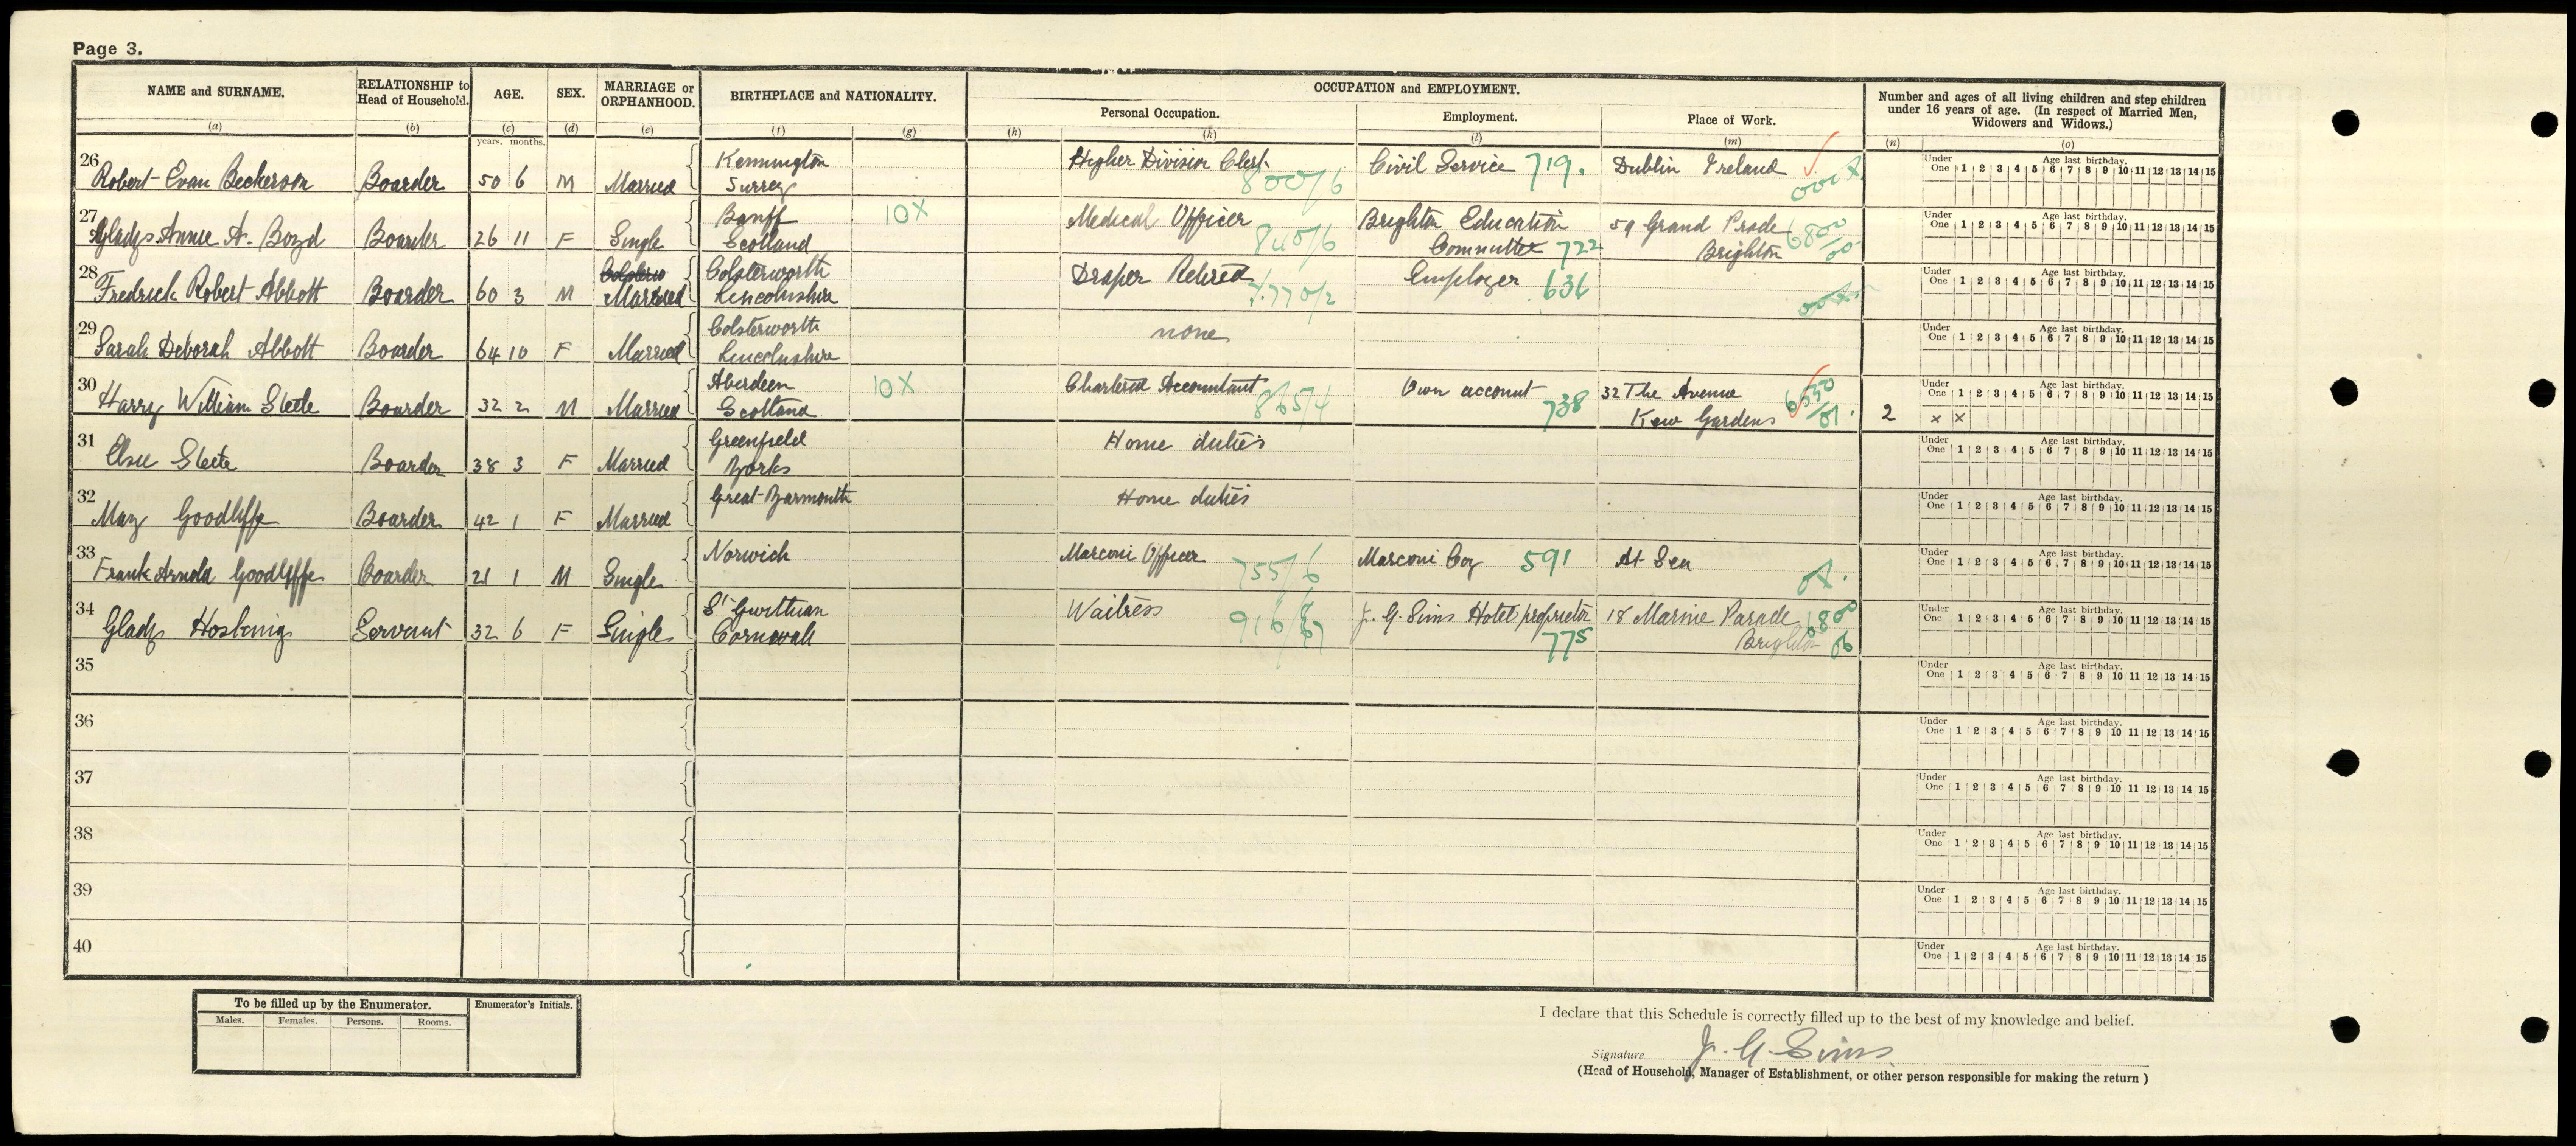 Page 3.
NAME and SURNAME.
RELATIONSHIP to Head of Household.
AGE.
SEX.
MARRIAGE or ORPHANHOOD.
BIRTHPLACE and NATIONALITY.
OCCUPATION and EMPLOYMENT.
Personal Occupation.
Employment.
Place of Work.
Number and ages of all living children and step children under 16 years of age. (In respect of Married Men, Widowers and Widows.)
(a) (b) (c) (d) (e) (f) (g) (h) (k) (l) (m) (n) (o)
years. months.
26 Robert Evan Beckerson Boarder 50 6 M Married Kennington Surrey Higher Division Clerk 800/6 Civil Service 719. Dublin Ireland
Under One 1 2 3 4 5 6 7 8 9 10 11 12 13 14 15 Age last birthday.
27 Gladys Annie A. Boyd Boarder 26 11 F Single Banff Scotland 10X Medical Officer 840/6 Brighton Education Committee 722 59 Grand Prade Brighton 6800
Under One 1 2 3 4 5 6 7 8 9 10 11 12 13 14 15 Age last birthday.
28 Fredrick Robert Abbott Boarder 60 3 M Married Colsterworth Lincolnshire Draper Retired 770/2 Employer 636
Under One 1 2 3 4 5 6 7 8 9 10 11 12 13 14 15 Age last birthday.
29 Sarah Deborah Abbott Boarder 64 10 F Married Colsterworth Lincolnshire none
Under One 1 2 3 4 5 6 7 8 9 10 11 12 13 14 15 Age last birthday.
30 Harry William Steele Boarder 32 2 M Married Aberdeen Scotland 10X Chartered Accountant 865/4 Own account 738 32 The Avenue Kew Gardens 2 x x
Under One 1 2 3 4 5 6 7 8 9 10 11 12 13 14 15 Age last birthday.
31 Elsie Steele Boarder 38 3 F Married Greenfield Yorks Home duties
Under One 1 2 3 4 5 6 7 8 9 10 11 12 13 14 15 Age last birthday.
32 May Goodliffe Boarder 42 1 F Married Great Yarmouth Home duties
Under One 1 2 3 4 5 6 7 8 9 10 11 12 13 14 15 Age last birthday.
33 Frank Arnold Goodliffe Boarder 21 1 M Single Norwich Marconi Officer 755/6 Marconi Coy 591 At Sea
Under One 1 2 3 4 5 6 7 8 9 10 11 12 13 14 15 Age last birthday.
34 Gladys Hosking Servant 32 6 F Single St Gwithian Cornwall Waitress 916/ J. G. Sims Hotel proprietor 775 18 Marine Parade Brighton
Under One 1 2 3 4 5 6 7 8 9 10 11 12 13 14 15 Age last birthday.
35
Under One 1 2 3 4 5 6 7 8 9 10 11 12 13 14 15 Age last birthday.
36
Under One 1 2 3 4 5 6 7 8 9 10 11 12 13 14 15 Age last birthday.
37
Under One 1 2 3 4 5 6 7 8 9 10 11 12 13 14 15 Age last birthday.
38
Under One 1 2 3 4 5 6 7 8 9 10 11 12 13 14 15 Age last birthday.
39
Under One 1 2 3 4 5 6 7 8 9 10 11 12 13 14 15 Age last birthday.
40
Under One 1 2 3 4 5 6 7 8 9 10 11 12 13 14 15 Age last birthday.
To be filled up by the Enumerator.
Enumerator's Initials.
Males. Females. Persons. Rooms.
I declare that this Schedule is correctly filled up to the best of my knowledge and belief.
Signature J. G. Sims
(Head of Household, Manager of Establishment, or other person responsible for making the return )